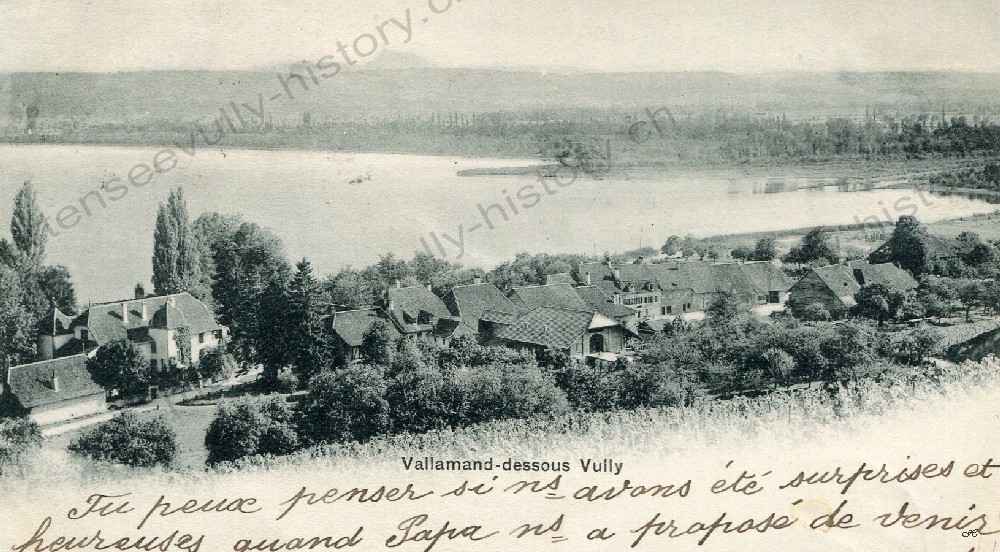 tenseevully-history.ch
history.ch
history
Vallamand-dessous Vully
Tu peux penser si ns avons été surprises et
heureuses quand Papa ns a proposé de venir